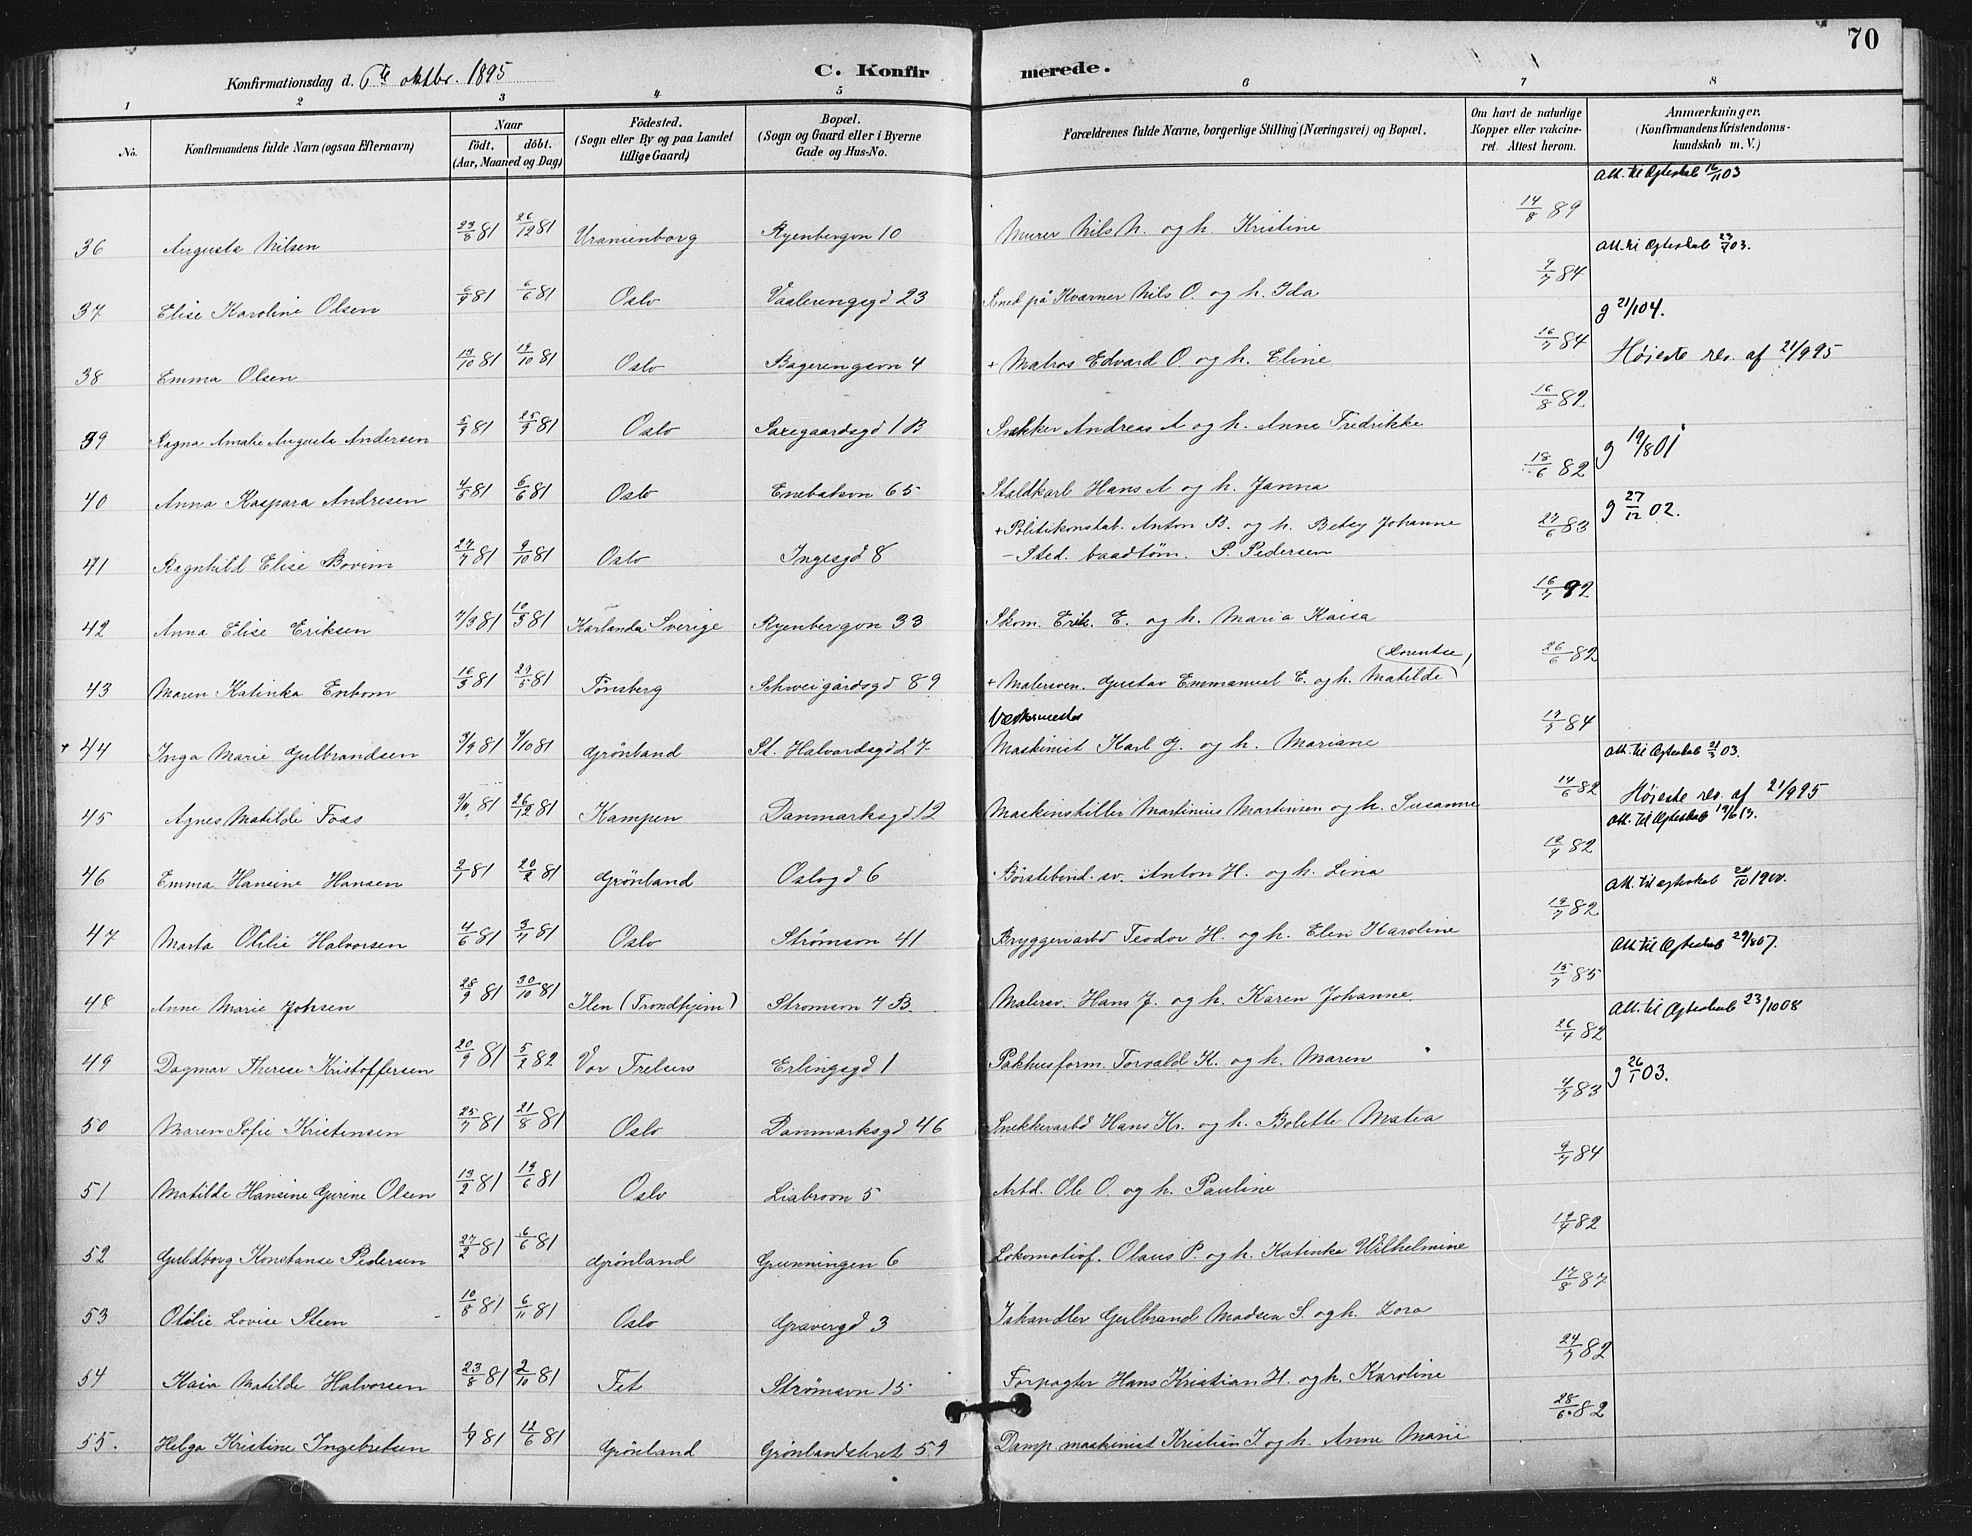 70
Konfirmationsdag d. 6te oktbr. 1895
C. Konfirmerede.
1 2 3 4 5 6 7 8
No. Konfirmandens fulde Navn (ogsaa Efternavn) Naar født. døbt. (Aar, Maaned og Dag) Fødested. (Sogn eller By og paa Landet tillige Gaard) Bopæl. (Sogn og Gaard eller i Byerne Gade og Hus-No. Forældrenes fulde Navne, borgerlige Stilling (Næringsvei) og Bopæl. Om havt de naturlige Kopper eller vakcineret. Attest herom. Anmærkninger. (Konfirmandens Kristendomskundskab m. V.)
Att. til Ægteskab 16/11 03
36 Augusta Nilsen 23/8 81 26/12 81 Uranienborg Ryenbergvn 10 Murer Nils N. og h. Kristine 14/8 89
Att. til Ægteskab 03.
37 Elise Karoline Olsen 81 6/6 81 Oslo Vaalerengsgd 23 Smed på Kværner Nils O. og h. Ida 9/7 84
g 21/1 04.
38 Emma Olsen 81 81 Oslo Bagerengsvn 4 + Matros Edvard O. og h. Eline 16/7 84 Højeste res. af 21/9 95
39 Ragna Amalie Augusta Andersen 81 81 Oslo Saxegaardsgd 1 B Snekker Andreas A og h. Anne Fredrikke 16/8 82
g 19/8 01
40 Anna Kaspara Andresen 4/5 81 6/6 81 Oslo Enebakvn 65 Staldkarl Hans A og h. Janna 18/6 82
g 27/12 02.
41 Ragnhild Elise Bovim 27/7 81 9/10 81 Oslo Ingesgd 8 + Politikonstab. Anton B. og h. Betsy Johanne 27/6 83
- Sted. baadtøm. P. Pedersen
42 Anna Elise Eriksen 7/3 81 10/3 81 Karlanda Sverige Ryenbergvn 33 Skom. Erik. E. og h. Maria Kaisa 16/7 92
43 Maren Katinka Enhom 16/3 81 29/5 81 Tønsberg Schweigårdsgd 89 + Malersven. Gustav Emmanuel E. og h. Matilde (Lorentse) 26/6 82
Værksmester
+ 44 Inga Marie Gulbrandsen 3/9 81 9/10 81 Grönland St. Halvardsgd 27 Maskinist Karl G. og h. Mariane 84
Att. til Ægteskab 03.
45 Agnes Matilde Foss 9/11 81 26/12 81 Kampen Danmarksgd 12 Maskinstiller Martinius Martinsen og h. Susanne 14/6 82 Højeste res. af 21/9 95
Att. til Ægteskab 19/6 13.
46 Emma Hansine Hansen 2/1 81 20/2 81 Grönland Oslogd 6 Børstebind. sv. Anton H. og h. Lina 82
Att. til ægteskab 1900.
47 Marta Otilie Halvorsen 4/6 81 3/7 81 Oslo Strømsvn 41 Bryggeriarbd Teodor H. og h. Elen Karoline 82
Att. til Ægteskab 29/8 07.
48 Anne Marie Johsen 28/9 81 30/10 81 Ilen (Trondhjem) Strømsvn 4 B. Malersv. Hans J. og h. Karen Johanne 15/7 85
Att. til Ægteskab 23/10 08
49 Dagmar Therese Kristoffersen 20/9 81 5/2 82 Vor Frelsers Erlingsgd 1 Pakhusform. Torvald K. og h. Maren 26/4 82
g 26/1 03.
50 Maren Sofie Kristensen 25/7 81 21/8 81 Oslo Danmarksgd 46 Snekkerarbd Hans Kr. og h. Bolette Matea 83
51 Matilde Hansine Gurine Olsen 81 19/6 81 Oslo Liabrovn 5 Arbd. Ole O. og h. Pauline 9/7 84
52 Guldborg Konstanse Pedersen 27/2 81 6/6 81 Grönland Grønningen 6 Lokomotivf. Olaus P. og h. Katinka Wilhelmine 82
53 Otilie Lovise Steen 10/8 81 6/11 81 Oslo Gravergd 3 Ishandler Gulbrand Madsen S. og h. Lora 17/8 87
54 Kaia Matilde Halvorsen 23/8 81 2/10 81 Fet Strømsvn 15 Forpagter Hans Kristian H. og h. Karoline 24/7 82
55. Helga Kristine Ingebretsen 81 12/6 81 Grönland Grønlandsleret 59 Damp maskinist Kristian I og h. Anne Marie 28/6 82